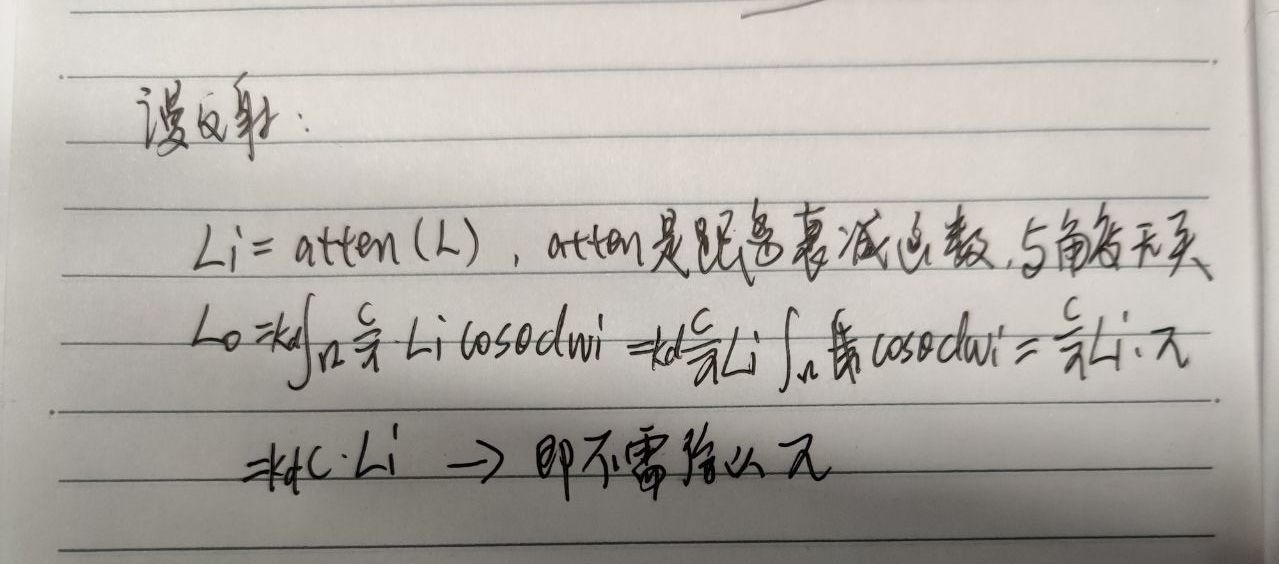 漫反射:
Li = atten(L), atten是距离衰减函数,与角度无关
Lo = kd∫Ω c/π · Li cosθ dwi = kd c/π Li ∫Ω cosθ dwi = c/π Li · π
= kd c · Li → 即不需除以π